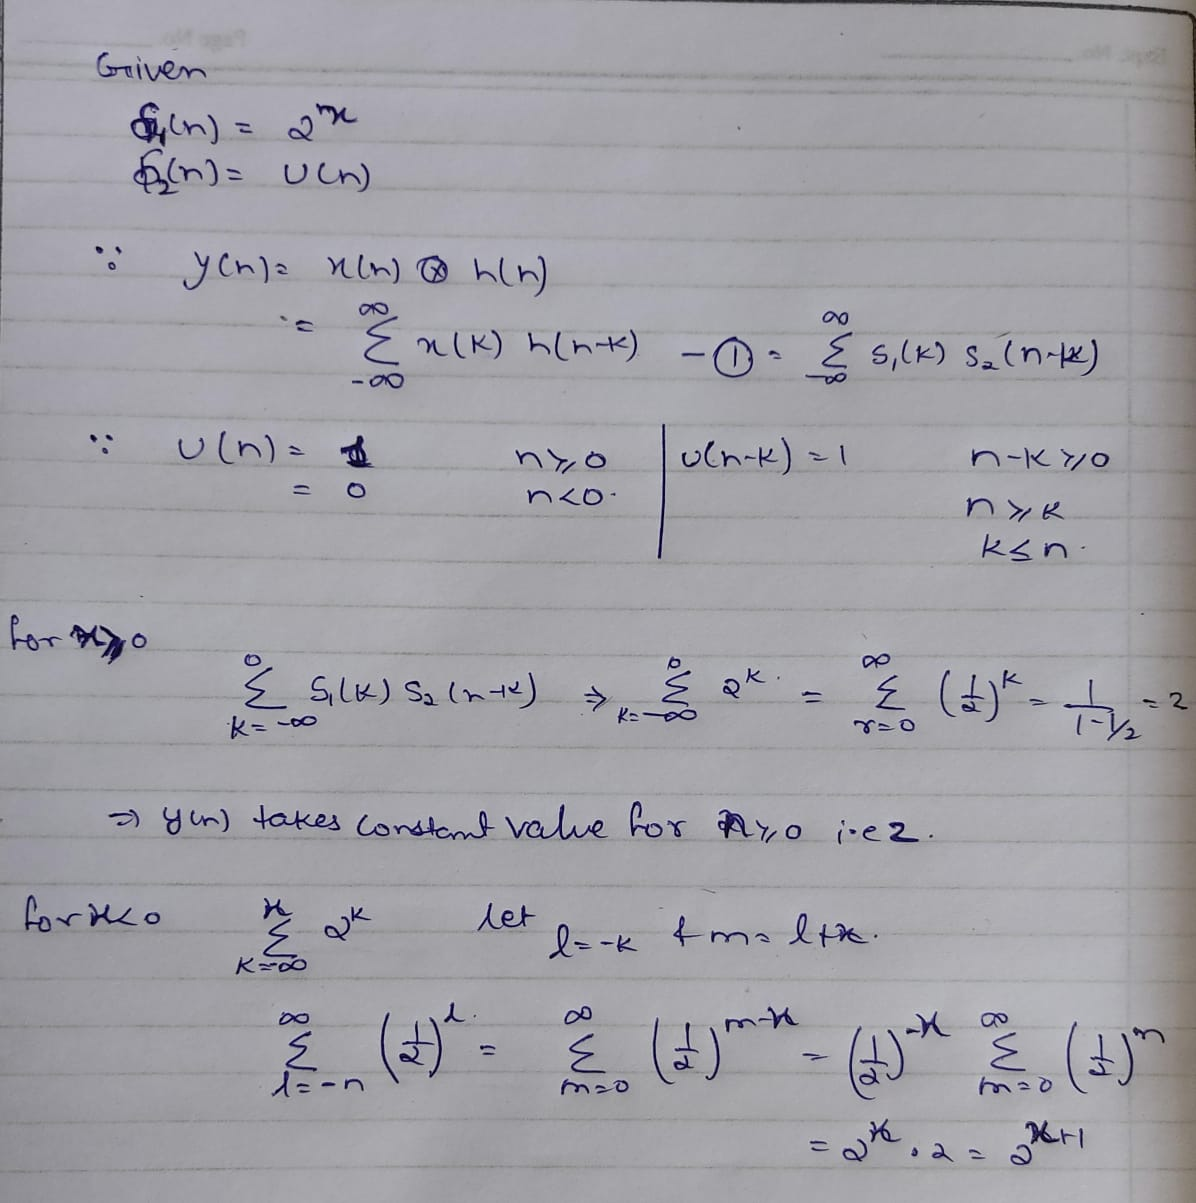 Given
S₁(n) = 2ⁿ
S₂(n) = U(n)
∵ y(n) = x(n) ⊗ h(n)
= ∑_{-∞}^{∞} x(k) h(n-k) - ① = ∑_{-∞}^{∞} S₁(k) S₂(n-k)
∵ U(n) = 1 n≥0 | U(n-k) = 1 n-k≥0
= 0 n<0. n≥k
k≤n.
for n≥0
∑_{k=-∞}^{0} S₁(k) S₂(n-k) ⇒ ∑_{k=-∞}^{0} 2^k. = ∑_{r=0}^{∞} (1/2)^k = 1/(1-1/2) = 2
⇒ y(n) takes constant value for n≥0 i.e 2.
for x<0 ∑_{k=-∞}^{x} 2^k let l=-k & m= l+x.
∑_{l=-n}^{∞} (1/2)^l. = ∑_{m=0}^{∞} (1/2)^{m-x} = (1/2)^{-x} ∑_{m=0}^{∞} (1/2)^m
= 2^x . 2 = 2^{x+1}